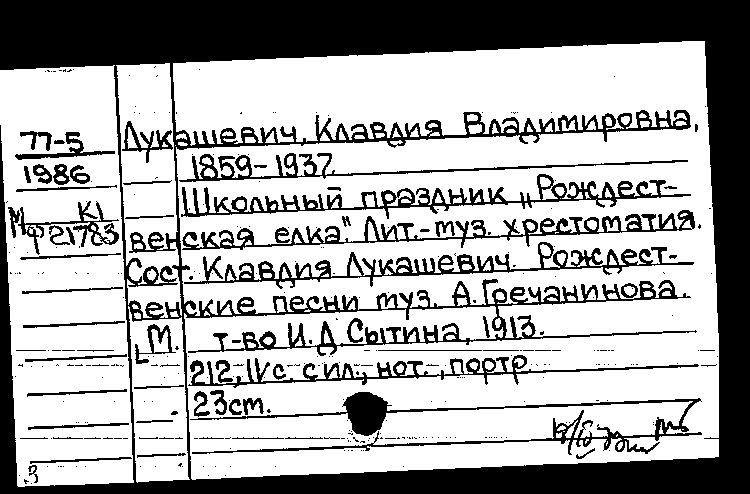 77-5
1986
М К1
Ф 21783
Лукашевич, Клавдия Владимировна,
1859-1937.
Школьный праздник „Рождест-
венская елка". Лит.-муз. хрестоматия.
Сост. Клавдия Лукашевич. Рождест-
венские песни муз. А. Гречанинова.
М. т-во И.Д. Сытина, 1913.
212, IV с. с ил., нот., портр
23 см.
3